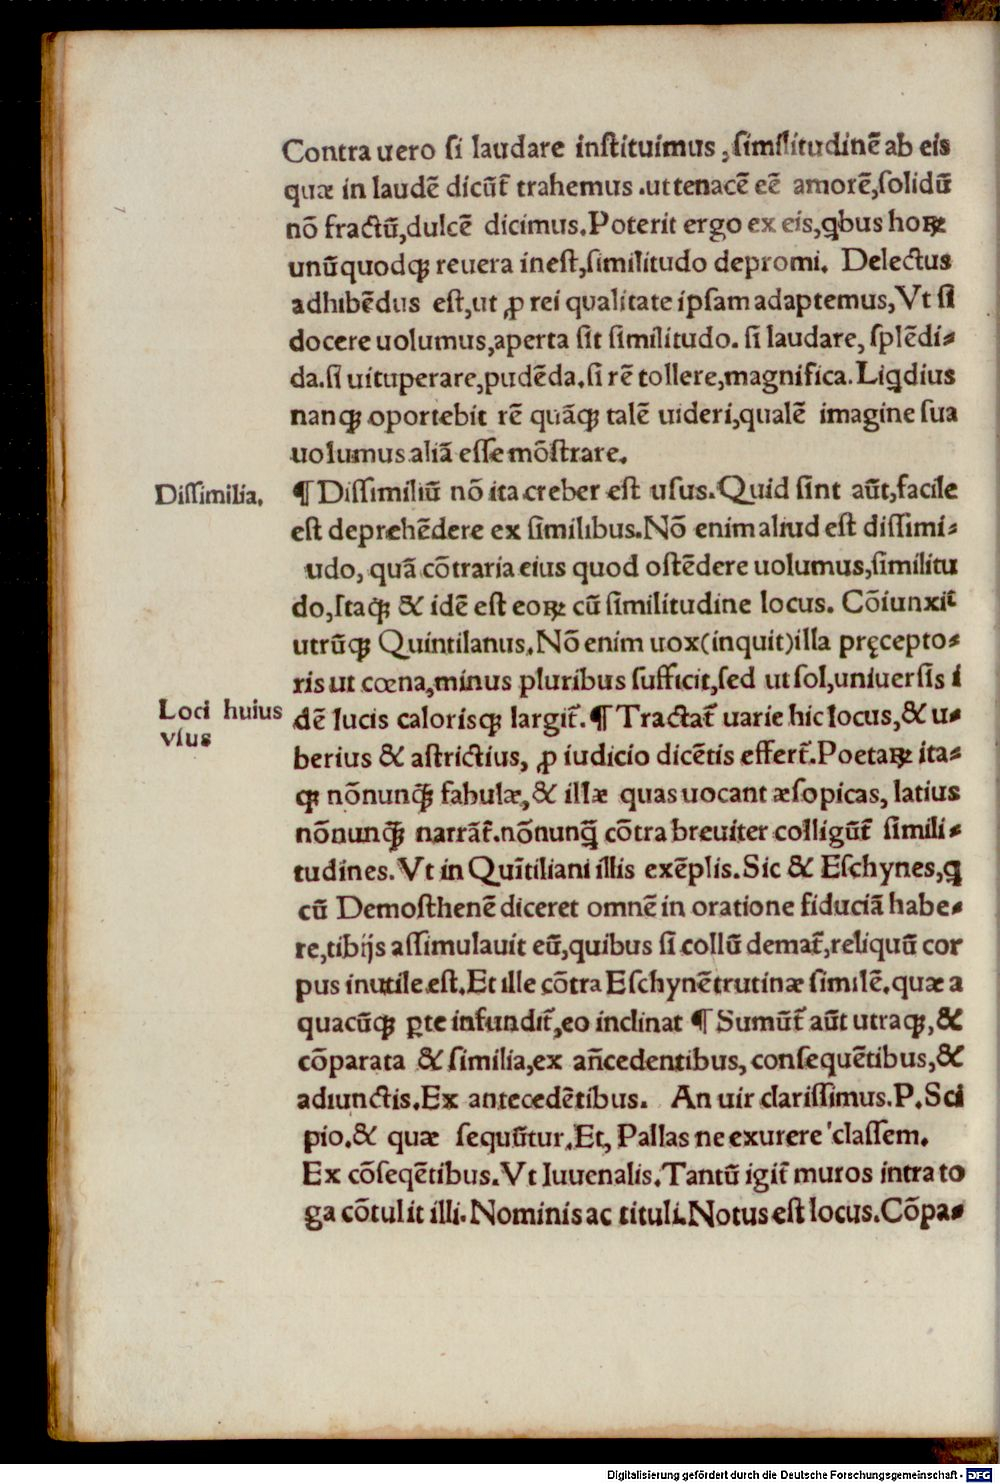 Contra uero ſi laudare inſtituimus, ſimilitudinē ab eis
quæ in laudē dicūt̄ trahemus .ut tenacē eē amorē,ſolidū
nō fractū,dulcē dicimus.Poterit ergo ex eis,ꝗbus hoꝝ
unūquodqꝫ reuera ineſt,ſimilitudo depromi. Delectus
adhibēdus eſt,ut ꝓ rei qualitate ipſam adaptemus,Vt ſi
docere uolumus,aperta ſit ſimilitudo. ſi laudare, ſplēdi⸗
da.ſi uituperare,pudēda.ſi rē tollere,magnifica.Liꝗdius
nanqꝫ oportebit rē quāqꝫ talē uideri,qualē imagine ſua
uolumus aliā eſſe mōſtrare.
Diſſimilia.
¶ Diſſimiliū nō ita creber eſt uſus.Quid ſint aūt,facile
eſt deprehēdere ex ſimilibus.Nō enim aliud eſt diſſimi⸗
udo, quā cōtraria eius quod oſtēdere uolumus,ſimilitu
do,Itaqꝫ & idē eſt eoꝝ cū ſimilitudine locus. Cōiunxit̄
utrūqꝫ Quintilanus.Nō enim uox(inquit)illa pręcepto⸗
ris ut cœna,minus pluribus ſufficit,ſed ut ſol,uniuerſis i
Loci huius
vſus
dē lucis calorisqꝫ largit̄.¶ Tractat̄ uarie hic locus,& u⸗
berius & aſtrictius, ꝓ iudicio dicētis effert̄.Poetaꝝ ita⸗
qꝫ nōnunqꝫ̄ fabulæ,& illæ quas uocant æſopicas, latius
nōnunqꝫ̄ narrāt̄.nōnunꝗ̄ cōtra breuiter colligūt̄ ſimili⸗
tudines.Vt in Quītiliani illis exēplis.Sic & Eſchynes,ꝗ
cū Demoſthenē diceret omnē in oratione fiduciā habe⸗
re,tibijs aſſimulauit eū,quibus ſi collū demat̄,reliquū cor
pus inutile eſt.Et ille cōtra Eſchynē trutinæ ſimilē.quæ a
quacūqꝫ ꝑte infundit̄,eo inclinat ¶ Sumūt̄ aūt utraqꝫ,&
cōparata & ſimilia,ex añcedentibus, conſequētibus,&
adiunctis.Ex antecedētibus. An uir clariſſimus.P.Sci
pio.& quæ ſequūtur.Et, Pallas ne exurere claſſem.
Ex cōſeqētibus.Vt Iuuenalis.Tantū igit̄ muros intra to
ga cōtulit illi.Nominis ac tituli.Notus eſt locus.Cōpa⸗
Digitalisierung gefördert durch die Deutsche Forschungsgemeinschaft - DFG